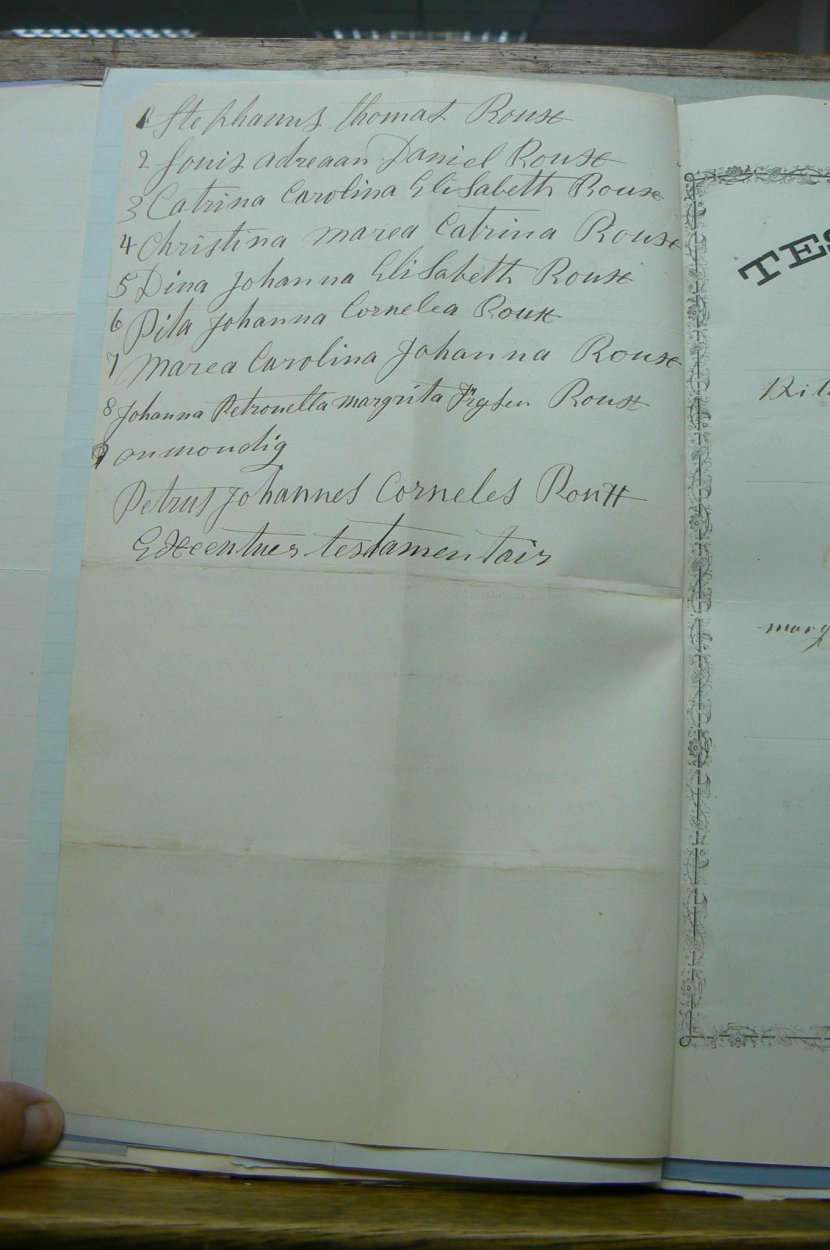 1 Stephanus thomas Roux
2 Louis adreaan Daniel Roux
3 Catrina Carolina Elisabeth Roux
4 Christina marea Catrina Roux
5 Dina Johanna Elisabeth Roux
6 Pita Johanna Cornelea Roux
7 Marea Carolina Johanna Roux
8 Johanna Petronella margrita Roux
9 onmondig
Petrus Johannes Corneles Roux
Exceentues testamentair
TES